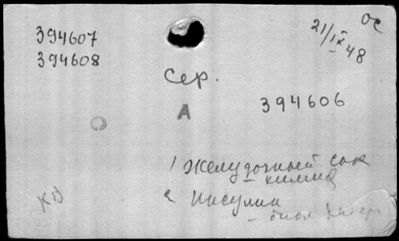 394607
394608
21/IX 48
ОС
Сер.
А
394606
1 Желудочный сок
– химия
2 Инсулин
– биол
ХВ